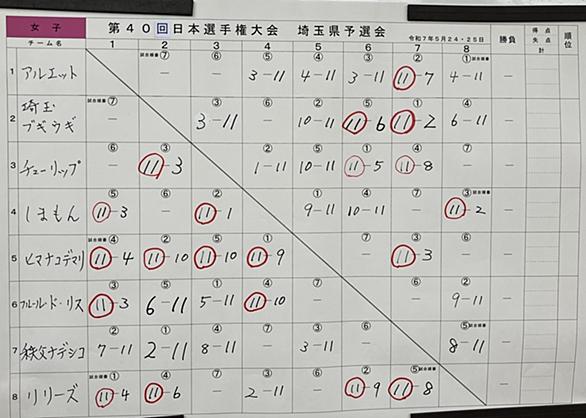 女子 第40回日本選手権大会 埼玉県予選会 令和7年5月24・25日 勝負 得点 失点 計 順位
チーム名 1 2 3 4 5 6 7 8
試合順番 ⑦ ⑥ ⑤ ④ ③ ② ① 試合順番
1 アルエット — — 3-11 4-11 3-11 11-7 4-11 —
試合順番 ⑦ ③ ⑥ ② ⑤ ① ④
2 埼玉 ブギウギ — 3-11 — 10-11 11-6 11-2 6-11 —
⑥ ③ ② ⑤ ① ④ ⑦
3 チューリップ — 11-3 1-11 10-11 11-5 11-8 — —
⑤ ⑥ ② ① ④ ⑦ ③ 試合順番
4 しまもん 11-3 — 11-1 9-11 10-11 — 11-2 —
試合順番 ④ ② ⑤ ① ⑦ ③ ⑥
5 ヒマナコデマリ 11-4 11-10 11-10 11-9 — 11-3 — —
③ ⑤ ① ④ ⑦ ⑥ ②
6 フルールド・リス 11-3 6-11 5-11 11-10 — — 9-11 —
② ① ④ ⑦ ③ ⑥ ⑤ 試合順番
7 秩父ナデシコ 7-11 2-11 8-11 — 3-11 — 8-11 —
① ④ ⑦ ③ ⑥ ② ⑤ 試合順番
8 リリーズ 11-4 11-6 — 2-11 — 11-9 11-8 —